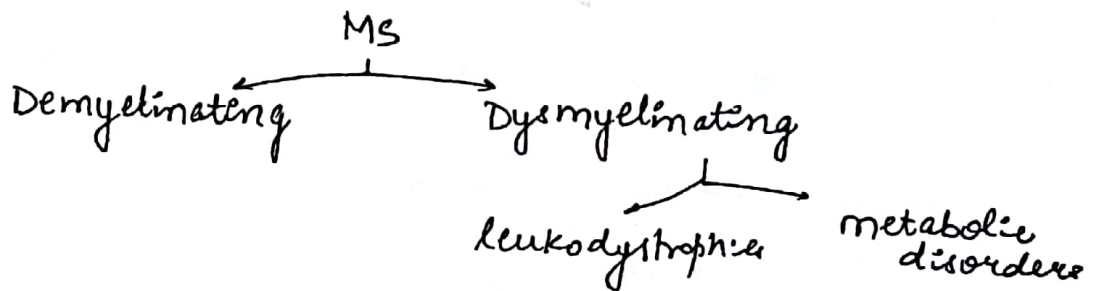 MS
Demyelinating
Dysmyelinating
leukodystrophies
metabolic
disorders